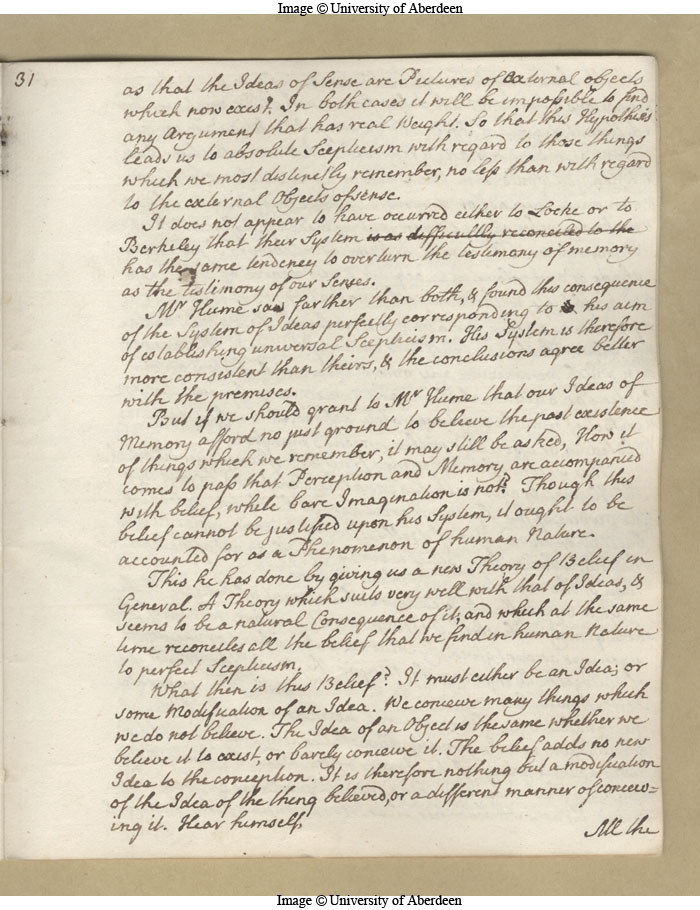 Image © University of Aberdeen
31
as that the Ideas of Sense are Pictures of external objects
which now exist. In both cases it will be impossible to find
any Argument that has real Weight. So that this Hypothesis
leads us to absolute Scepticism with regard to those things
which we most distinctly remember, no less than with regard
to the external Objects of sense.
It does not appear to have occurred either to Locke or to
Berkeley that their System is as difficultly reconciled to the
has the same tendency to overturn the testimony of memory
as the testimony of our Senses.
Mr Hume saw farther than both, & found this consequence
of the System of Ideas perfectly corresponding to his aim
of establishing universal Scepticism. His System is therefore
more consistent than theirs, & the conclusions agree better
with the premises.
But if we should grant to Mr Hume that our Ideas of
Memory afford no just ground to believe the past existence
of things which we remember, it may still be asked, How it
comes to pass that Perception and Memory are accompanied
with belief, while bare Imagination is not? Though this
belief cannot be justified upon his System, it ought to be
accounted for as a Phenomenon of human Nature.
This he has done by giving us a new Theory of Belief in
General. A Theory which suits very well with that of Ideas, &
seems to be a natural Consequence of it; and which at the same
time reconciles all the belief that we find in human Nature
to perfect Scepticism.
What then is this Belief? It must either be an Idea; or
some Modification of an Idea. We conceive many things which
we do not believe. The Idea of an Object is the same whether we
believe it to exist, or barely conceive it. The belief adds no new
Idea to the conception. It is therefore nothing but a modification
of the Idea of the thing believed, or a different manner of conceiv=
ing it. Hear himself,
All the
Image © University of Aberdeen